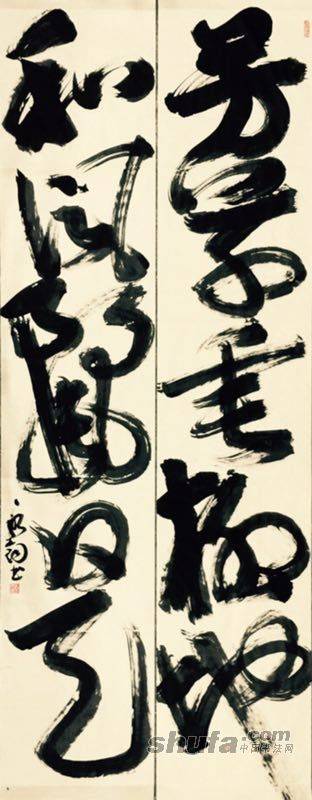 芳草垂楊地
和風麗日天
shufa.com
中国书法网